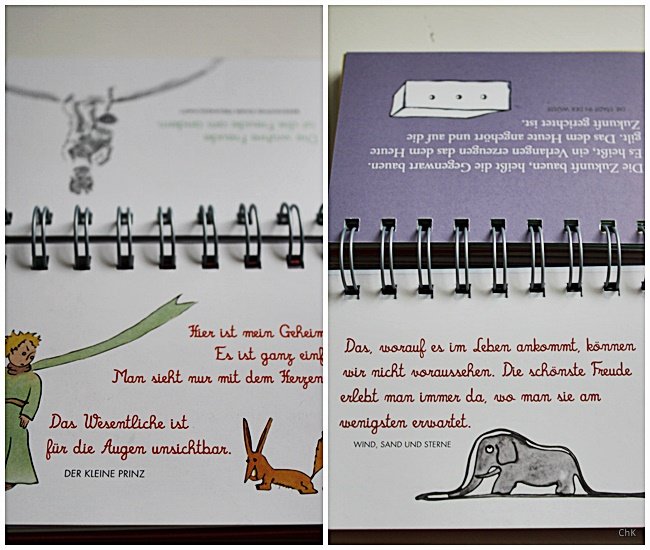 Die wahre Freude
ist die Freude am
Hier ist mein Geheim
Es ist ganz einf
Man sieht nur mit dem Herzen
Das Wesentliche ist
für die Augen unsichtbar.
DER KLEINE PRINZ
Die Zukunft bauen, heißt die Gegenwart bauen.
Es heißt, ein Verlangen erzeugen das dem Heute
gilt. Das dem Heute angehört und auf die
Zukunft gerichtet ist.
DIE STADT IN DER WÜSTE
Das, worauf es im Leben ankommt, können
wir nicht voraussehen. Die schönste Freude
erlebt man immer da, wo man sie am
wenigsten erwartet.
WIND, SAND UND STERNE
ChK